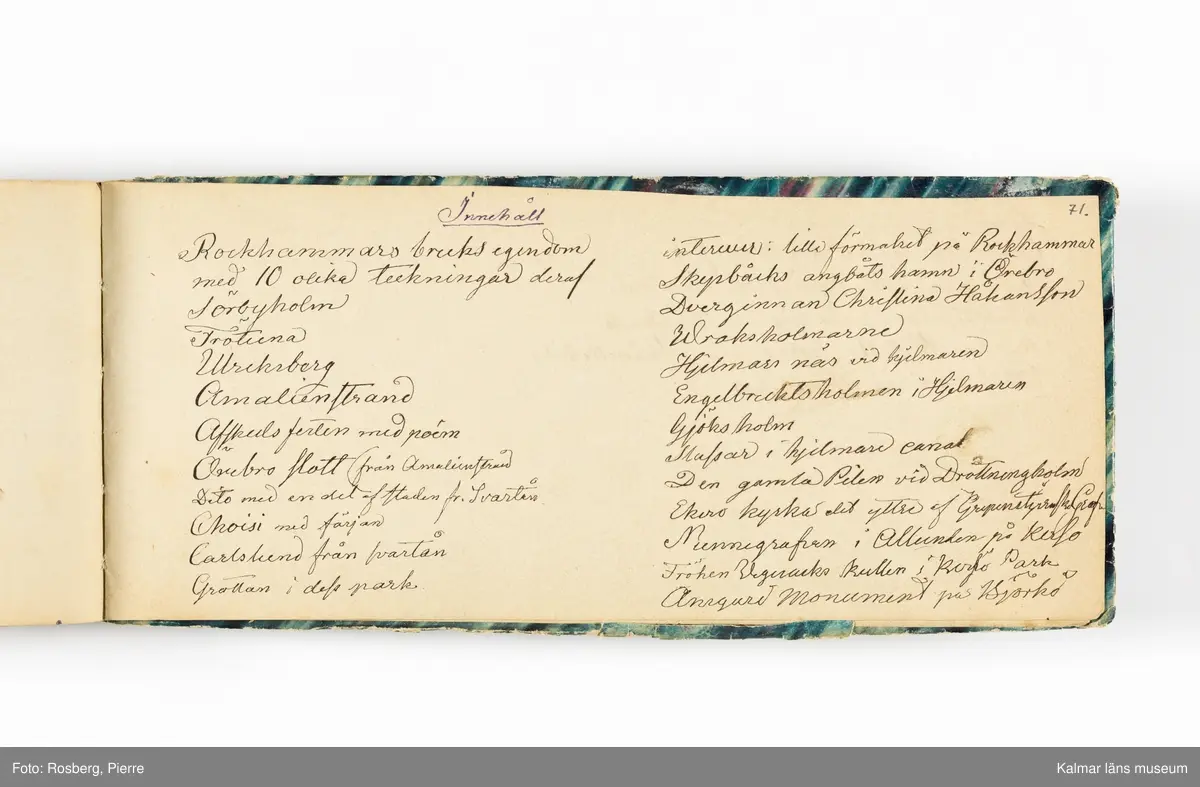 Innehåll
71.
Rockhammars bruks egendom
med 10 olika teckningar deraf
Sörbyholm
Frötuna
Ulriksberg
Amalienstrand
Afskeds festen med poém
Örebro slott (från Amalienstrand
Dito med en del af staden fr. Svartån
Choisi med färjan
Carlslund från svartån
Grottan i dess park
interieur: lilla förmaket på Rockhammar
Skepsbäcks angbåts hamn i Örebro
Dverginnan Christina Håkansson
Wraksholmarne
Hjelmars näs vid hjelmaren
Engelbrektsholmen i Hjelmaren
Gjöksholm
Slussar i hjelmare canal
Den gamla Pilen vid Drottningholm
Ekerö kyrka det yttre af
i Allunden på Kersö
Fröken kullen i Kersö Park
Ansgarii Monument på Björkö
Foto: Rosberg, Pierre
Kalmar läns museum